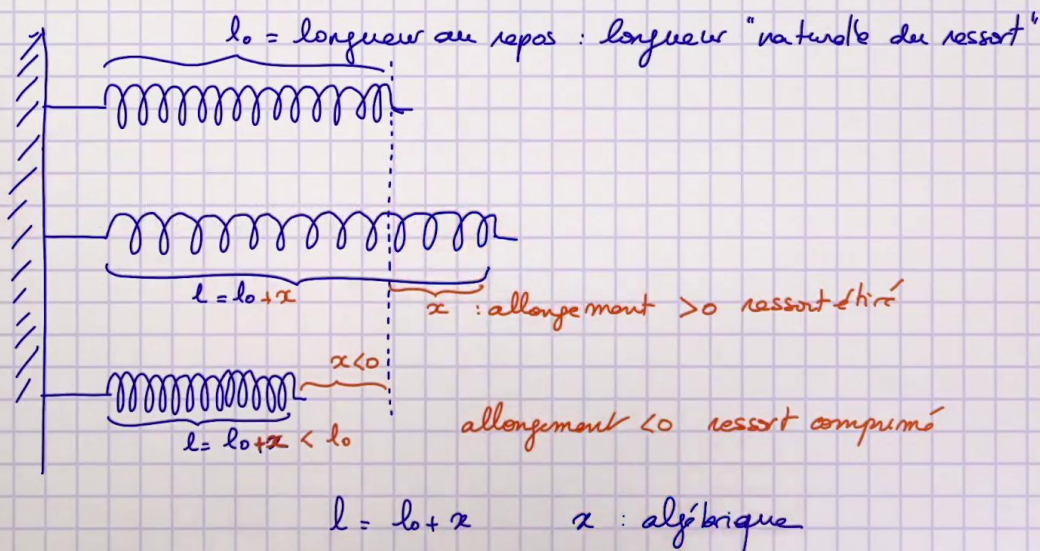 l₀ = longueur au repos : longueur "naturelle du ressort"
l = l₀ + x
x : allongement > 0 ressort étiré
x < 0
l = l₀ + x < l₀
allongement < 0 ressort comprimé
l = l₀ + x x : algébrique